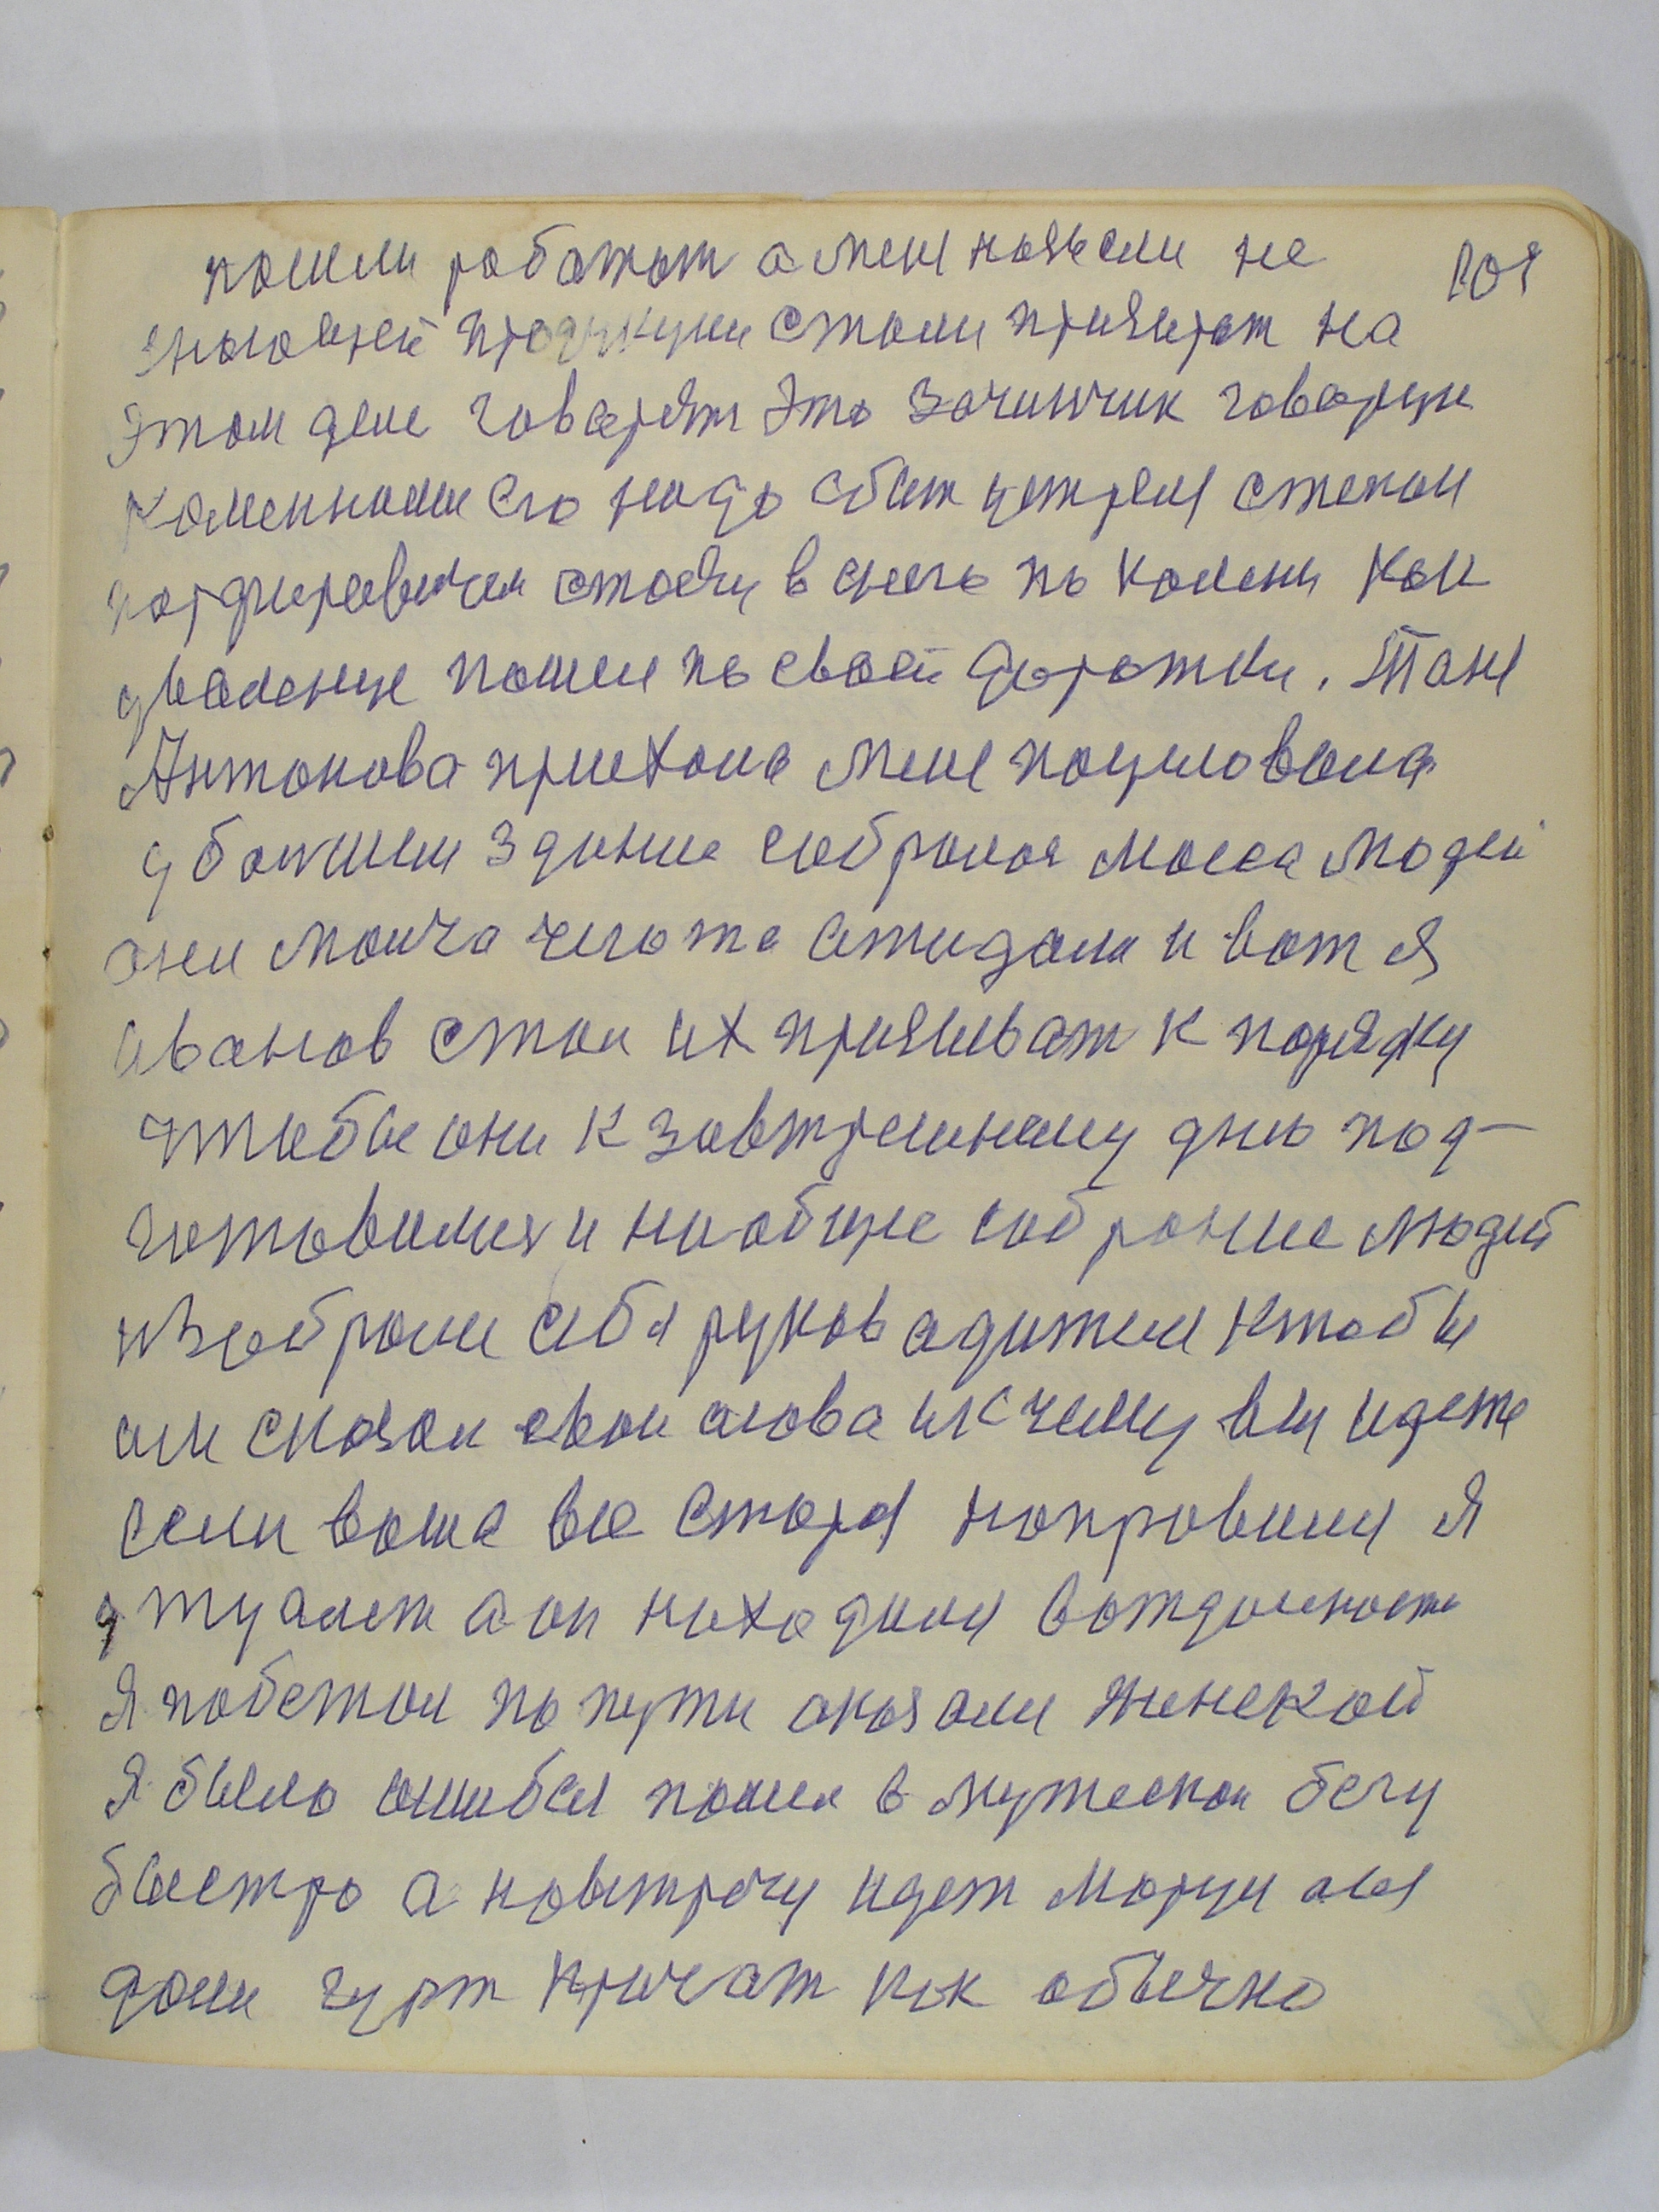 пошли работат а мене наявели не
продукции стали приявлят на
этом деле говарят это зачинчик говаряе
каменнами его надо сбит центрам степан
порфиревичем стоечи в снеге по колени как
уваленце пошел по своей дорожки. Таня
Антонова приехала мене поцеловала
у большем здание собралося масса людей
они молча чегото ажидали и вот я
иванов стал их приязыват к порядку
чтобы они к завтрешнему дню под-
готовилися и на обще собрание людей
изобрали себя руковадителя чтобы
или сказал свои слова их к чему вы идете
если ваша вся старая направили я
у туалет а он находился вотдаленосте
я побежал по пути аказали женской
я было ошибся пошел в мужеской бегу
быстро а навстречу идет
дали крычат как обычно